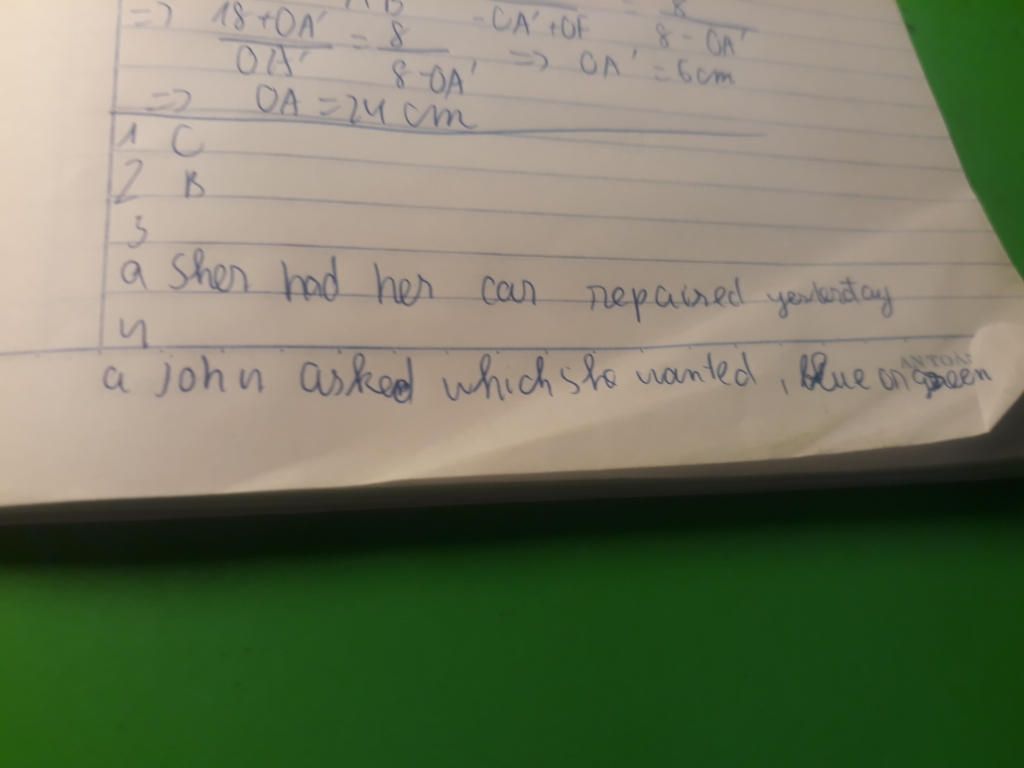 => 18+OA' / OA' = 8 / 8-OA' -OA'+OF 8-OA' => OA' = 6cm
=> OA = 24 cm
1 C
2 B
3
a Sher had her car repaired yesterday
4
a john asked which she wanted, blue or green